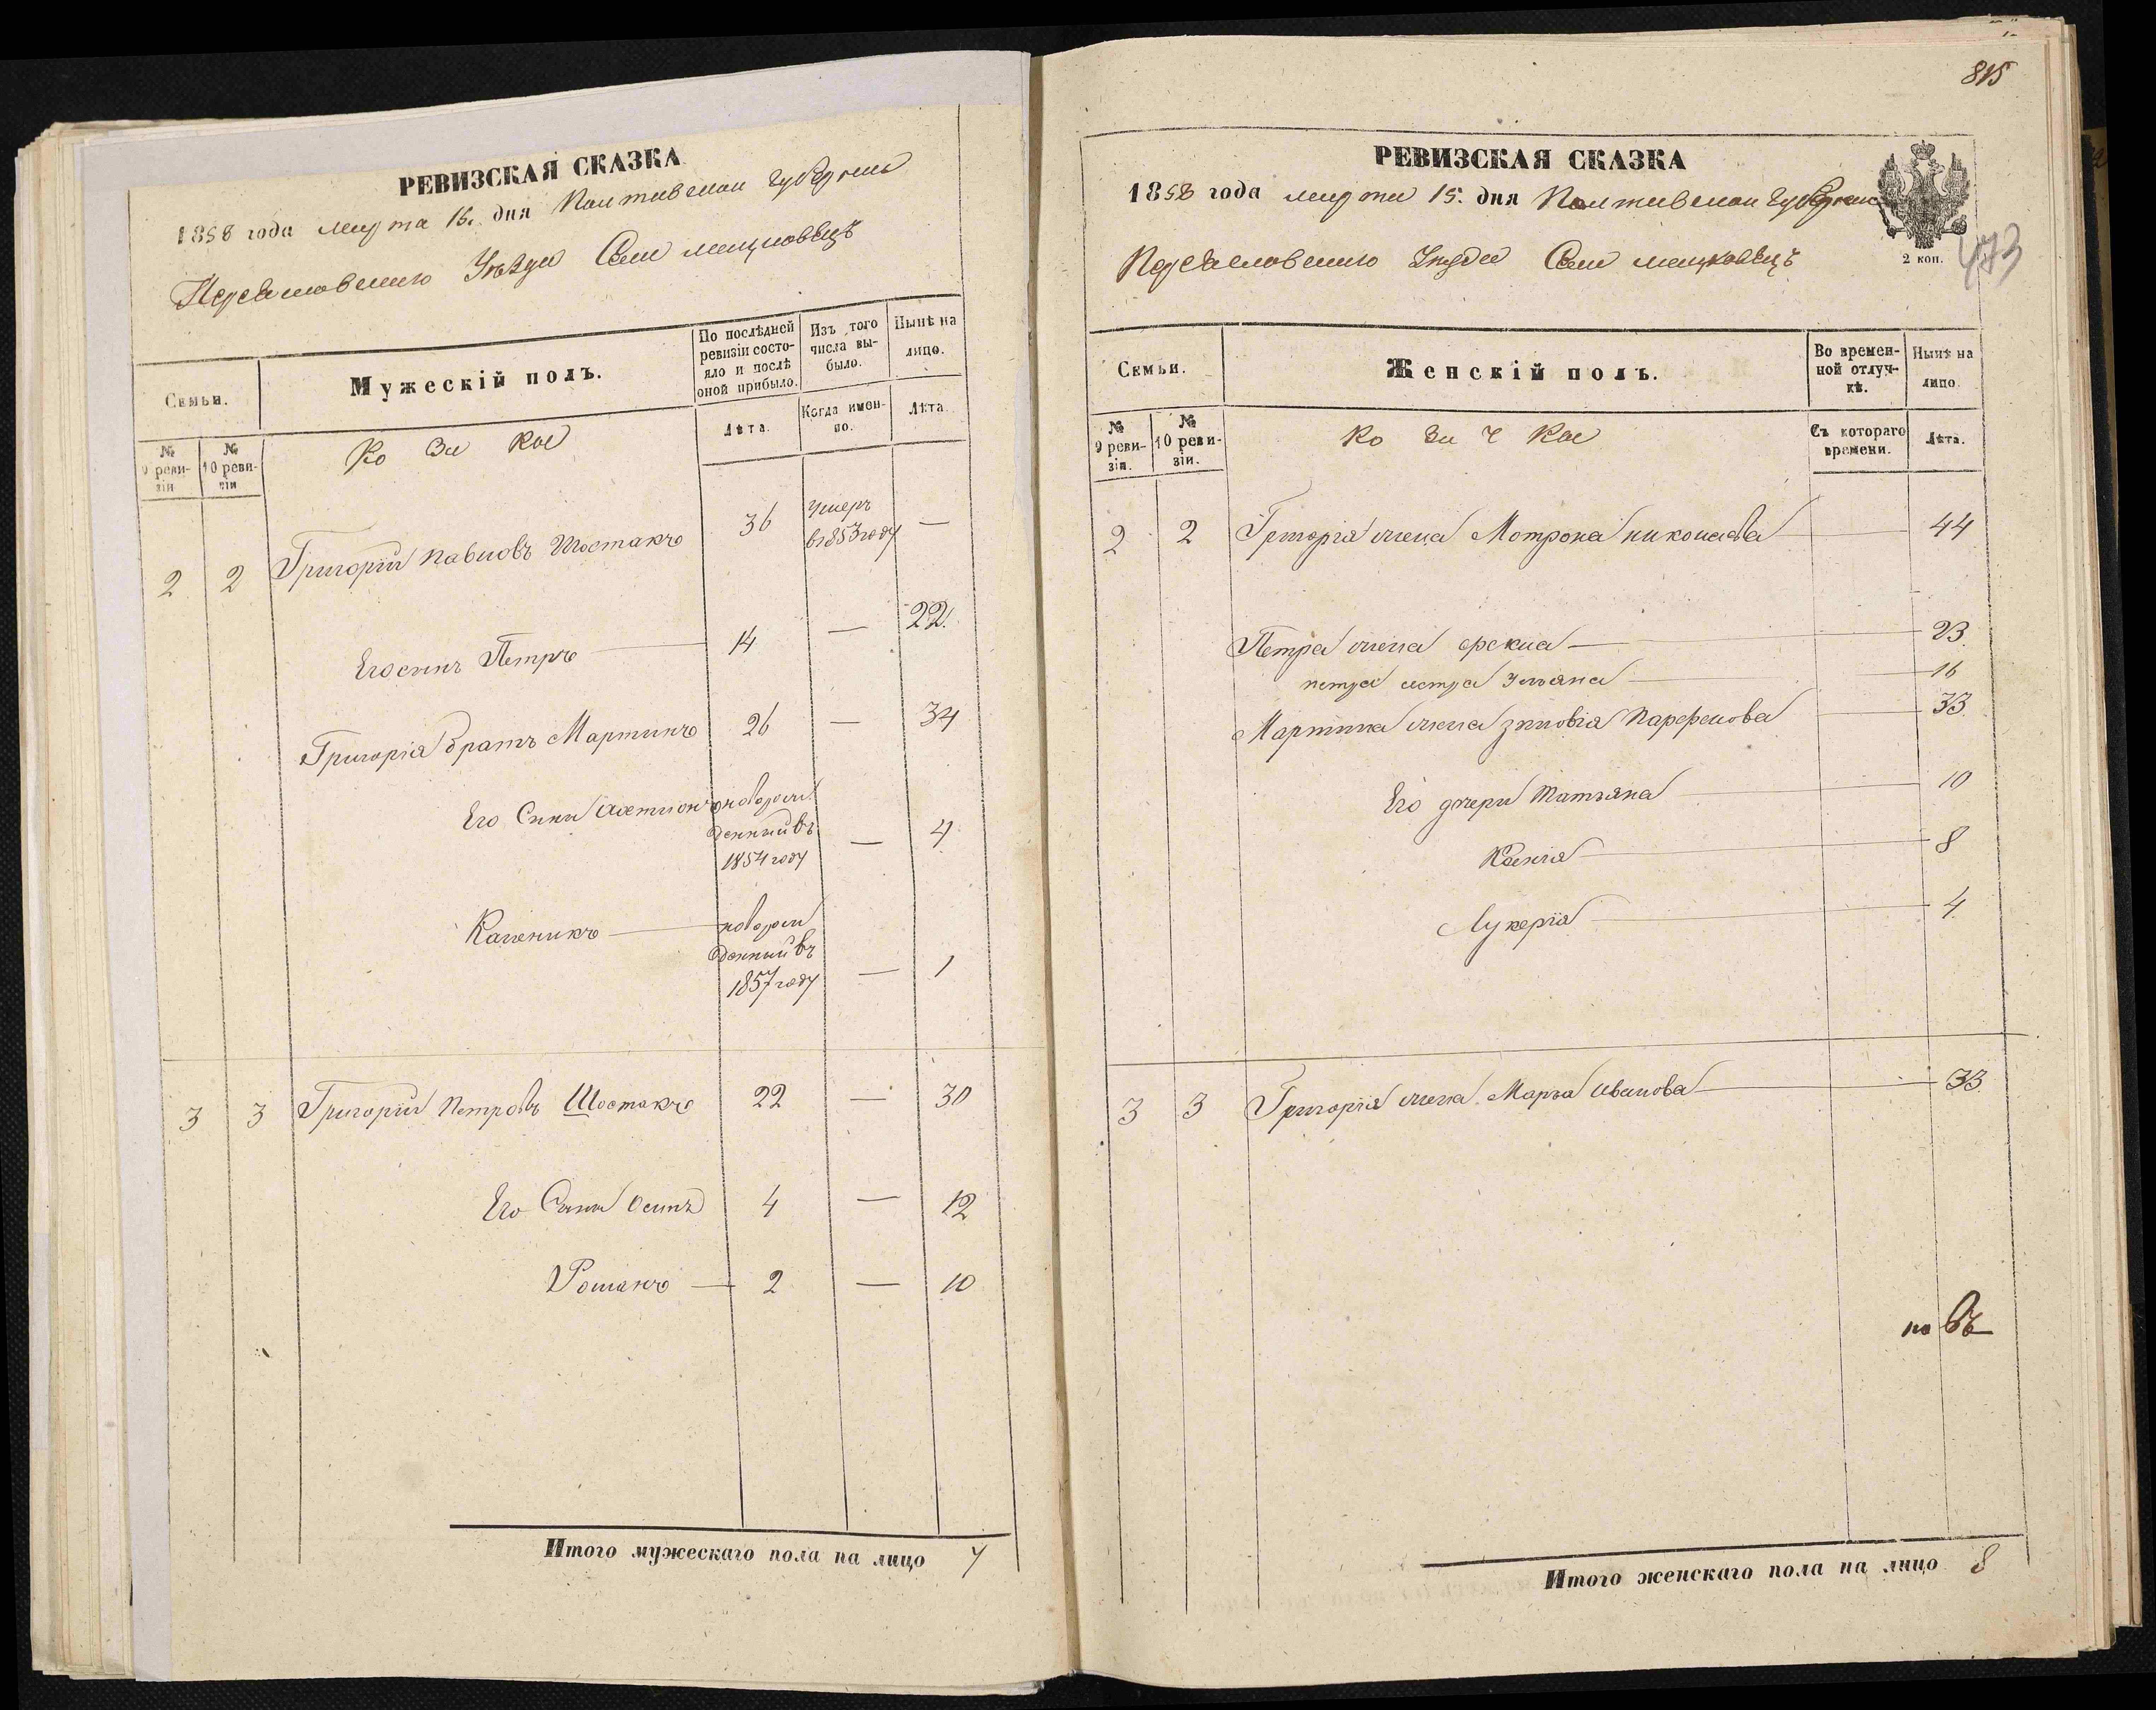 РЕВИЗСКАЯ СКАЗКА
1858 года марта 15. дня Полтавской губернии
Переяславского Уезда Села
Семьи.
Мужескій полъ.
По послѣдней ревизіи состояло и послѣ оной прибыло.
Изъ того числа выбыло.
Нынѣ на лицо.
№ 9 ревизіи
№ 10 ревизіи
Ко за ков
Лѣта.
Когда именно.
Лѣта.
2 2 Григорій Павловъ Шостакъ 36 умеръ в 1853 году —
Его сынъ Петръ — 14 — 22.
Григорія братъ Мартинъ 26 — 34
Его Сини новорожденный въ 1854 году — 4
Каленикъ — новорожденный въ 1857 году — 1
3 3 Григорій Петровъ Шостакъ 22 — 30
Его Сини Осипъ 4 — 12
Романъ — 2 — 10
Итого мужескаго пола на лицо 7
815
РЕВИЗСКАЯ СКАЗКА
1858 года марта 15. дня Полтавской губернии
Переяславского Уезда Села
2 коп.
473
Семьи.
Женскій полъ.
Во временной отлучкѣ.
Нынѣ на лицо.
№ 9 ревизіи.
№ 10 ревизіи.
Ко за ч ков
Съ котораго времени.
Лѣта.
2 2 Григорія жена Мотрона Николаева — 44
Петра жена — 23
Петра сестра Ульяна — 16
Мартина жена Зиновія Парфенова — 33.
Его дочери Татьяна — 10
Ксенія — 8
Лукерія — 4
3 3 Григорія жена Марья Иванова — 33.
Итого женскаго пола на лицо 8